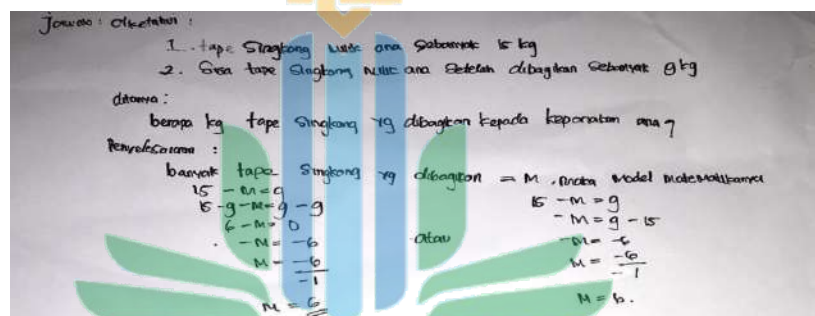 Jawab : Diketahui :
1. tape Singkong milik ana Sebanyak 15 kg
2. Sisa tape Singkong milik ana Setelah dibagikan Sebanyak 9 kg
ditanya :
berapa kg tape Singkong yg dibagikan kepada keponakan ana ?
Penyelesaian :
banyak tape Singkong yg dibagikan = M . maka Model matematikanya
15 - M = 9
15 - 9 - M = 9 - 9
6 - M = 0
- M = -6
M = -6
-1
M = 6
atau
15 - M = 9
- M = 9 - 15
- M = -6
M = -6
-1
M = 6.